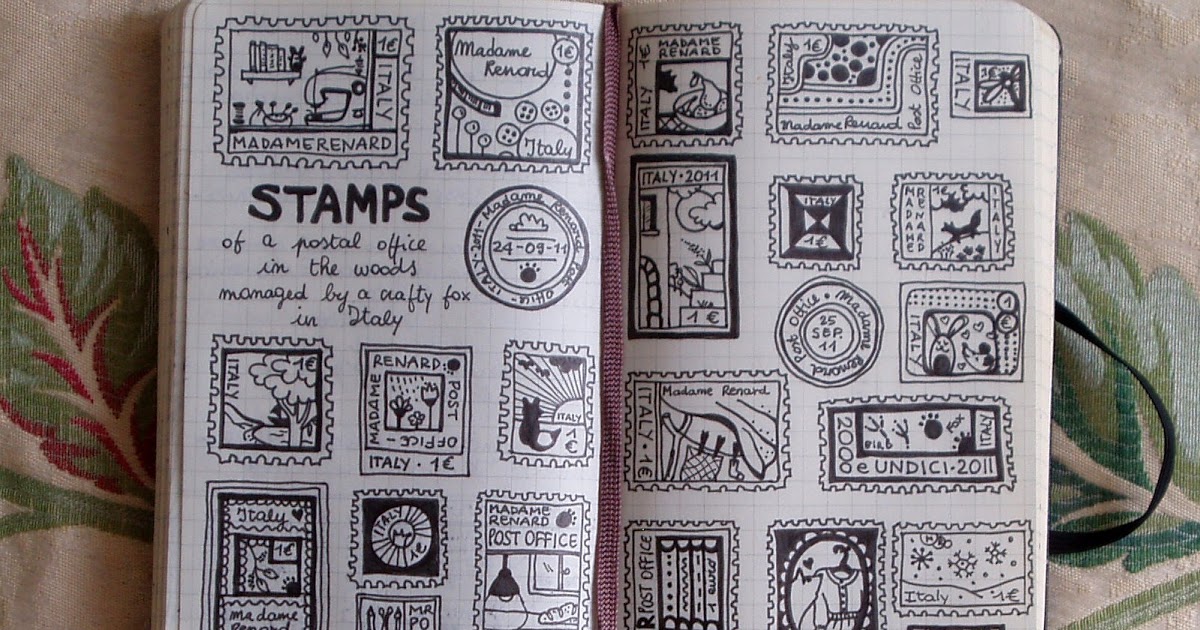 1€
ITALY
MADAME RENARD
Madame
Renard
1€
Italy
STAMPS
of a postal office
in the woods
managed by a crafty fox
in Italy
Madame Renard
Office · ITAL · 2011
24-09-11
ITALY
1€
RENARD
MADAME
POST
OFFICE
ITALY · 1€
ITALY
1€
Italy
1€
Madame
Renard
ITALY
1€
MADAME
RENARD
POST OFFICE
MR
PO
1€
MADAME
RENARD
ITALY
Italy
1€
Post Office
Madame Renard
ITALY
1€
ITALY · 2011
1€
ITALY
1€
MADAME
RENARD
1€
ITALY
Post Office · Madame Renard
25
SEP.
11
ITALY
1€
Madame Renard
ITALY · 1€
BIRB
FOX
ITALY
2000
e UNDICI · 2011
POST OFFICE
1 euro
Italy · 1€